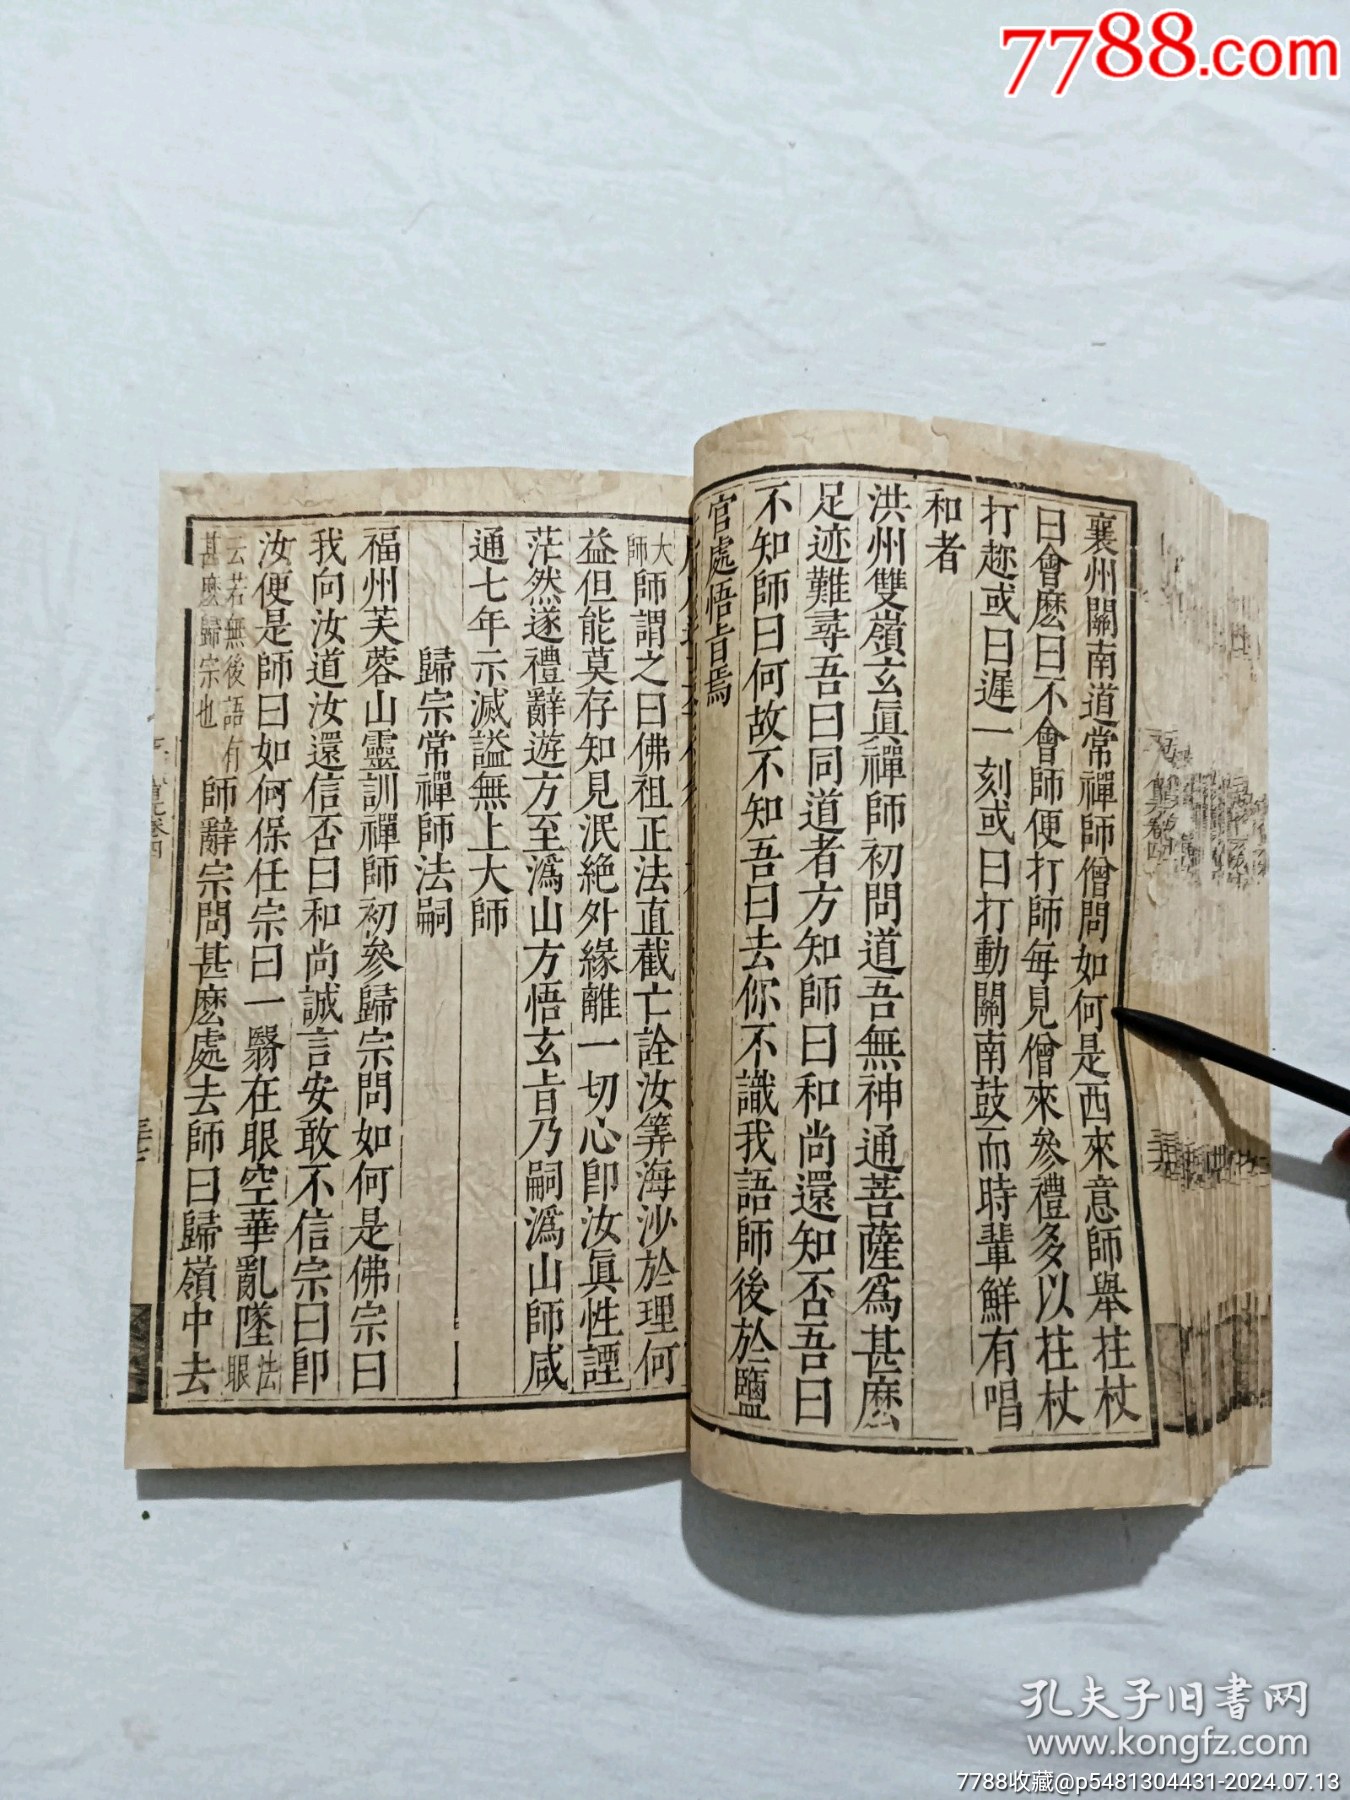 7788.com
襄州關南道常禪師僧問如何是西來意師舉拄杖
曰會麽曰不會師便打師每見僧來參禮多以拄杖
打趂或曰遲一刻或曰打動關南鼓而時輩鮮有唱
和者
洪州雙嶺玄眞禪師初問道吾無神通菩薩爲甚麽
足迹難尋吾曰同道者方知師曰和尚還知否吾曰
不知師曰何故不知吾曰去你不識我語師後於鹽
官處悟旨焉
大師
師謂之曰佛祖正法直截亡詮汝筭海沙於理何
益但能莫存知見泯絕外緣離一切心卽汝眞性譚
茫然遂禮辭遊方至潙山方悟玄旨乃嗣潙山師咸
通七年示滅謚無上大師
歸宗常禪師法嗣
福州芙蓉山靈訓禪師初參歸宗問如何是佛宗曰
我向汝道汝還信否曰和尚誠言安敢不信宗曰卽
汝便是師曰如何保任宗曰一翳在眼空華亂墜法眼
云若無後語有甚麽歸宗也師辭宗問甚麽處去師曰歸嶺中去
孔夫子旧書网
www.kongfz.com
7788收藏@p5481304431-2024.07.13